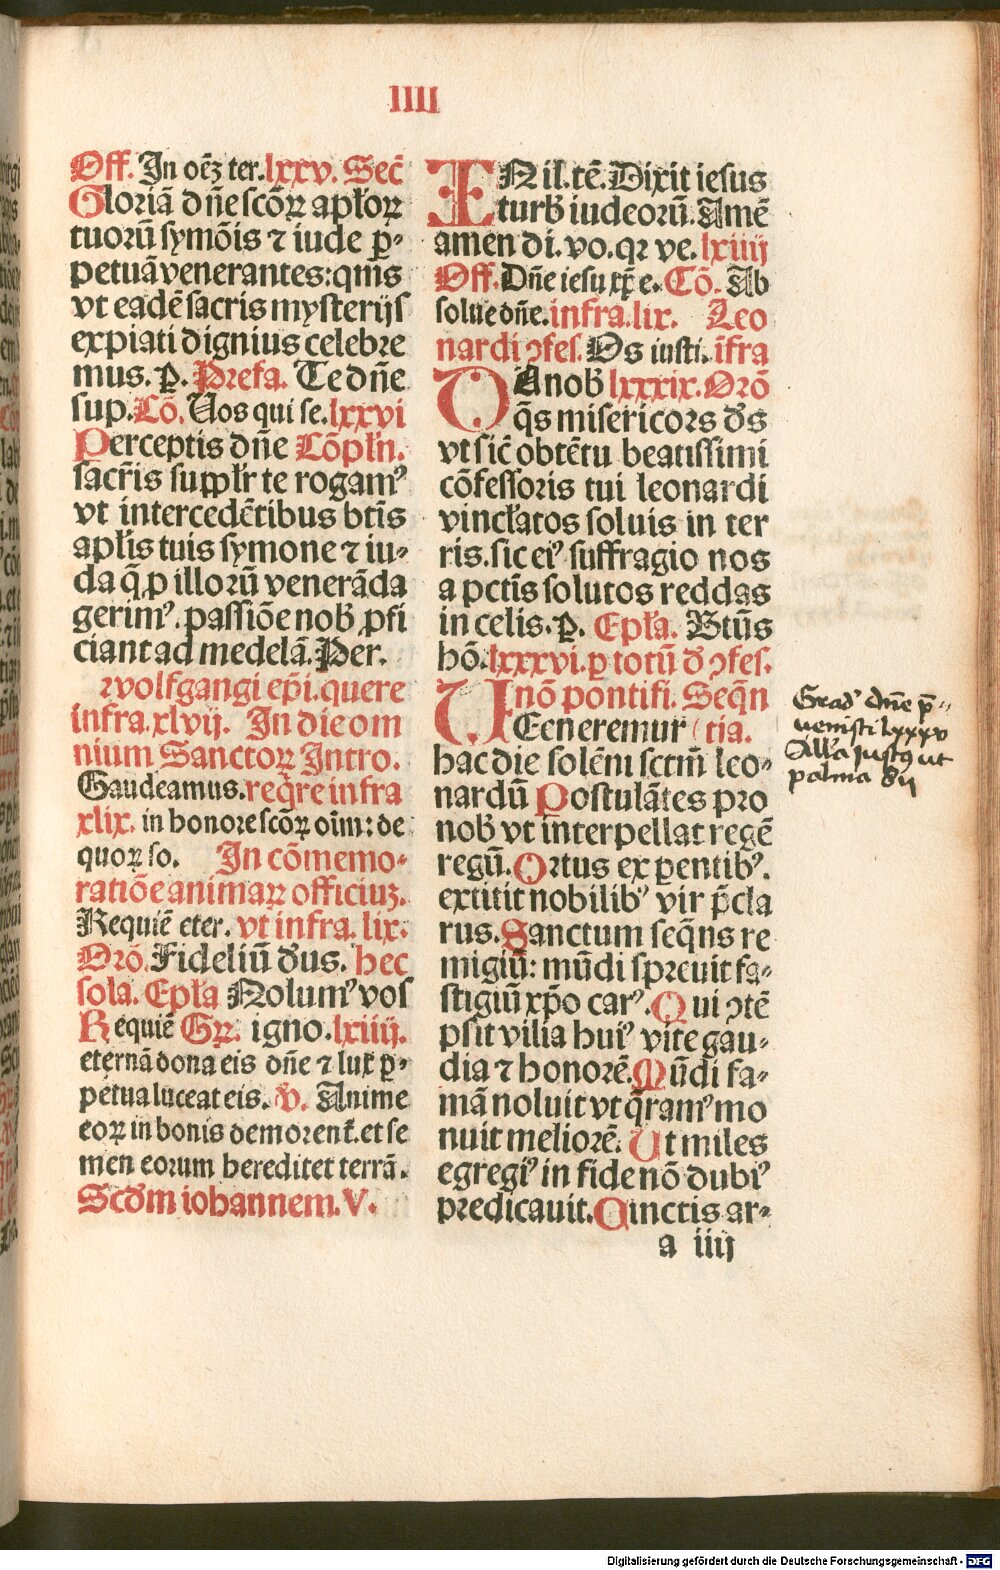 IIII
Off. In oēʒ ter. lxxv. Sec̄
Gloriā dn̄e scōꝝ apl̄oꝝ
tuorū symōis ⁊ iude ꝑ⸗
petuā venerantes: qm̄s
vt eadē sacris mysterijs
expiati dignius celebre
mus. ꝑ. Prefa. Te dn̄e
sup. Cō. Uos qui se. lxxvi
Perceptis dn̄e Cōpl̄n.
sacr̄is suppl̄r te rogamꝰ
vt intercedētibus bt̄is
apl̄is tuis symone ⁊ iu⸗
da q̄ ꝓ illorū venerāda
gerimꝰ. passiōe nob̄ ꝓfi
ciant ad medelā. Per.
wolfgangi ep̄i. quere
infra. xlvij. In die om
nium Sanctoꝝ Intro.
Gaudeamus. req̄re infra
xlix. in honore scōꝝ oīm: de
quoꝝ so. In cōmemo⸗
ratiōe animaꝝ officiuʒ.
Requiē eter. vt infra. lix.
Orō. Fideliū d̄us. hec
sola. Epl̄a Nolumꝰ vos
Requiē Gꝝ. igno. lxiiij.
eternā dona eis dn̄e ⁊ lux ꝑ⸗
petua luceat eis. V. Anime
eoꝝ in bonis demorent̄. et se
men eorum hereditet terrā.
Scd̄m iohannem. V.
EN il. tē. Dixit iesus
turb̄ iudeorū. Amē
amen di. vo. qr ve. lxiiij
Off. Dn̄e iesu xp̄e. Cō. Ab
solue dn̄e. infra. lix. Leo
nardi ꝯfes. Os iusti. īfra
DA nob̄ lxxxix. Orō
q̄s misericors d̄s
vt sic̄ obtētu beatissimi
cōfessoris tui leonardi
vincl̄atos soluis in ter
ris. sic eiꝰ suffragio nos
a pctīs solutos reddas
in celis. ꝑ. Epl̄a. Bt̄us
hō. lxxxvi. ꝑ totū d̄ ꝯfes.
nō pontifi. Seq̄n
VEneremur (tia.
hac die solēni sctm̄ leo⸗
nardū Postulātes pro
nob̄ vt interpellat regē
regū. Ortus ex ꝑentibꝰ.
extitit nobilibꝰ vir p̄cla
rus. Sanctum seq̄ns re
migiū: mūdi spreuit fa⸗
stigiū xp̄o carꝰ. Qui ꝯtē
psit vilia huiꝰ vite gau⸗
dia ⁊ honorē. Mūdi fa⸗
mā noluit vt q̄ramꝰ mo
nuit meliorē. Ut miles
egregiꝰ in fide nō dubiꝰ
predicauit. Cinctis ar⸗
a iiij
Gradꝰ dn̄e p̄⸗
uenisti lxxxv
All'a Justꝰ ut
palma 87
Digitalisierung gefördert durch die Deutsche Forschungsgemeinschaft - DFG